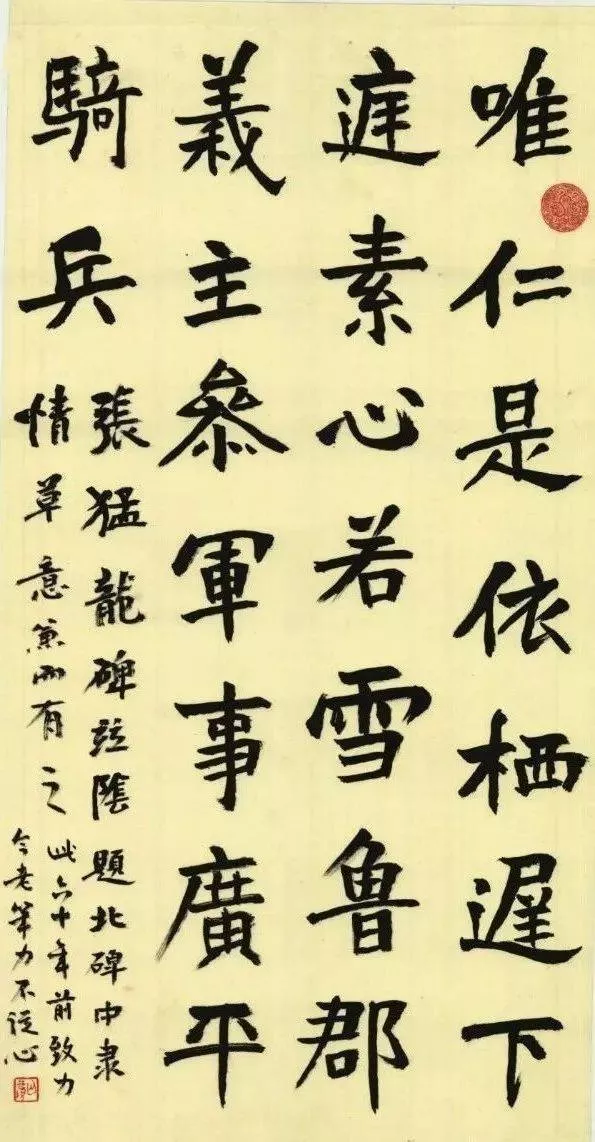 唯仁是依栖遲下
庭素心若雪魯郡
義主參軍事廣平
騎兵
張猛龍碑竝陰題北碑中隶
情草意兼而有之
此六十年前致力
今老筆力不從心